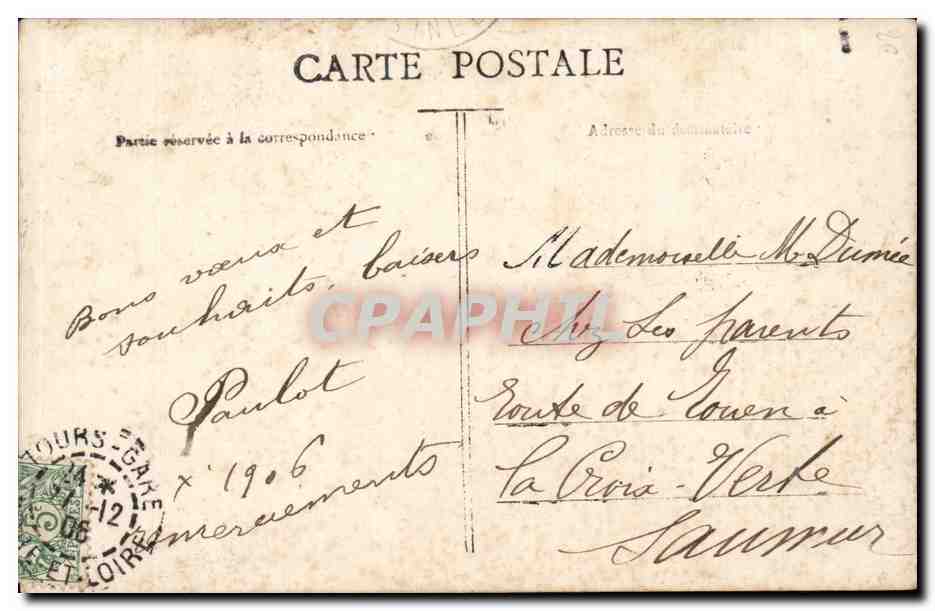 CARTE POSTALE
Partie réservée à la correspondance
Adresse du destinataire
Bons vœux et
souhaits, baisers
Paulot
1906
remerciements
Mademoiselle M Dumée
chez ses parents
Route de Rouen à
la Croix-Verte
Saumur
TOURS-GARE
12
06
ET-LOIRE
CPAPHIL